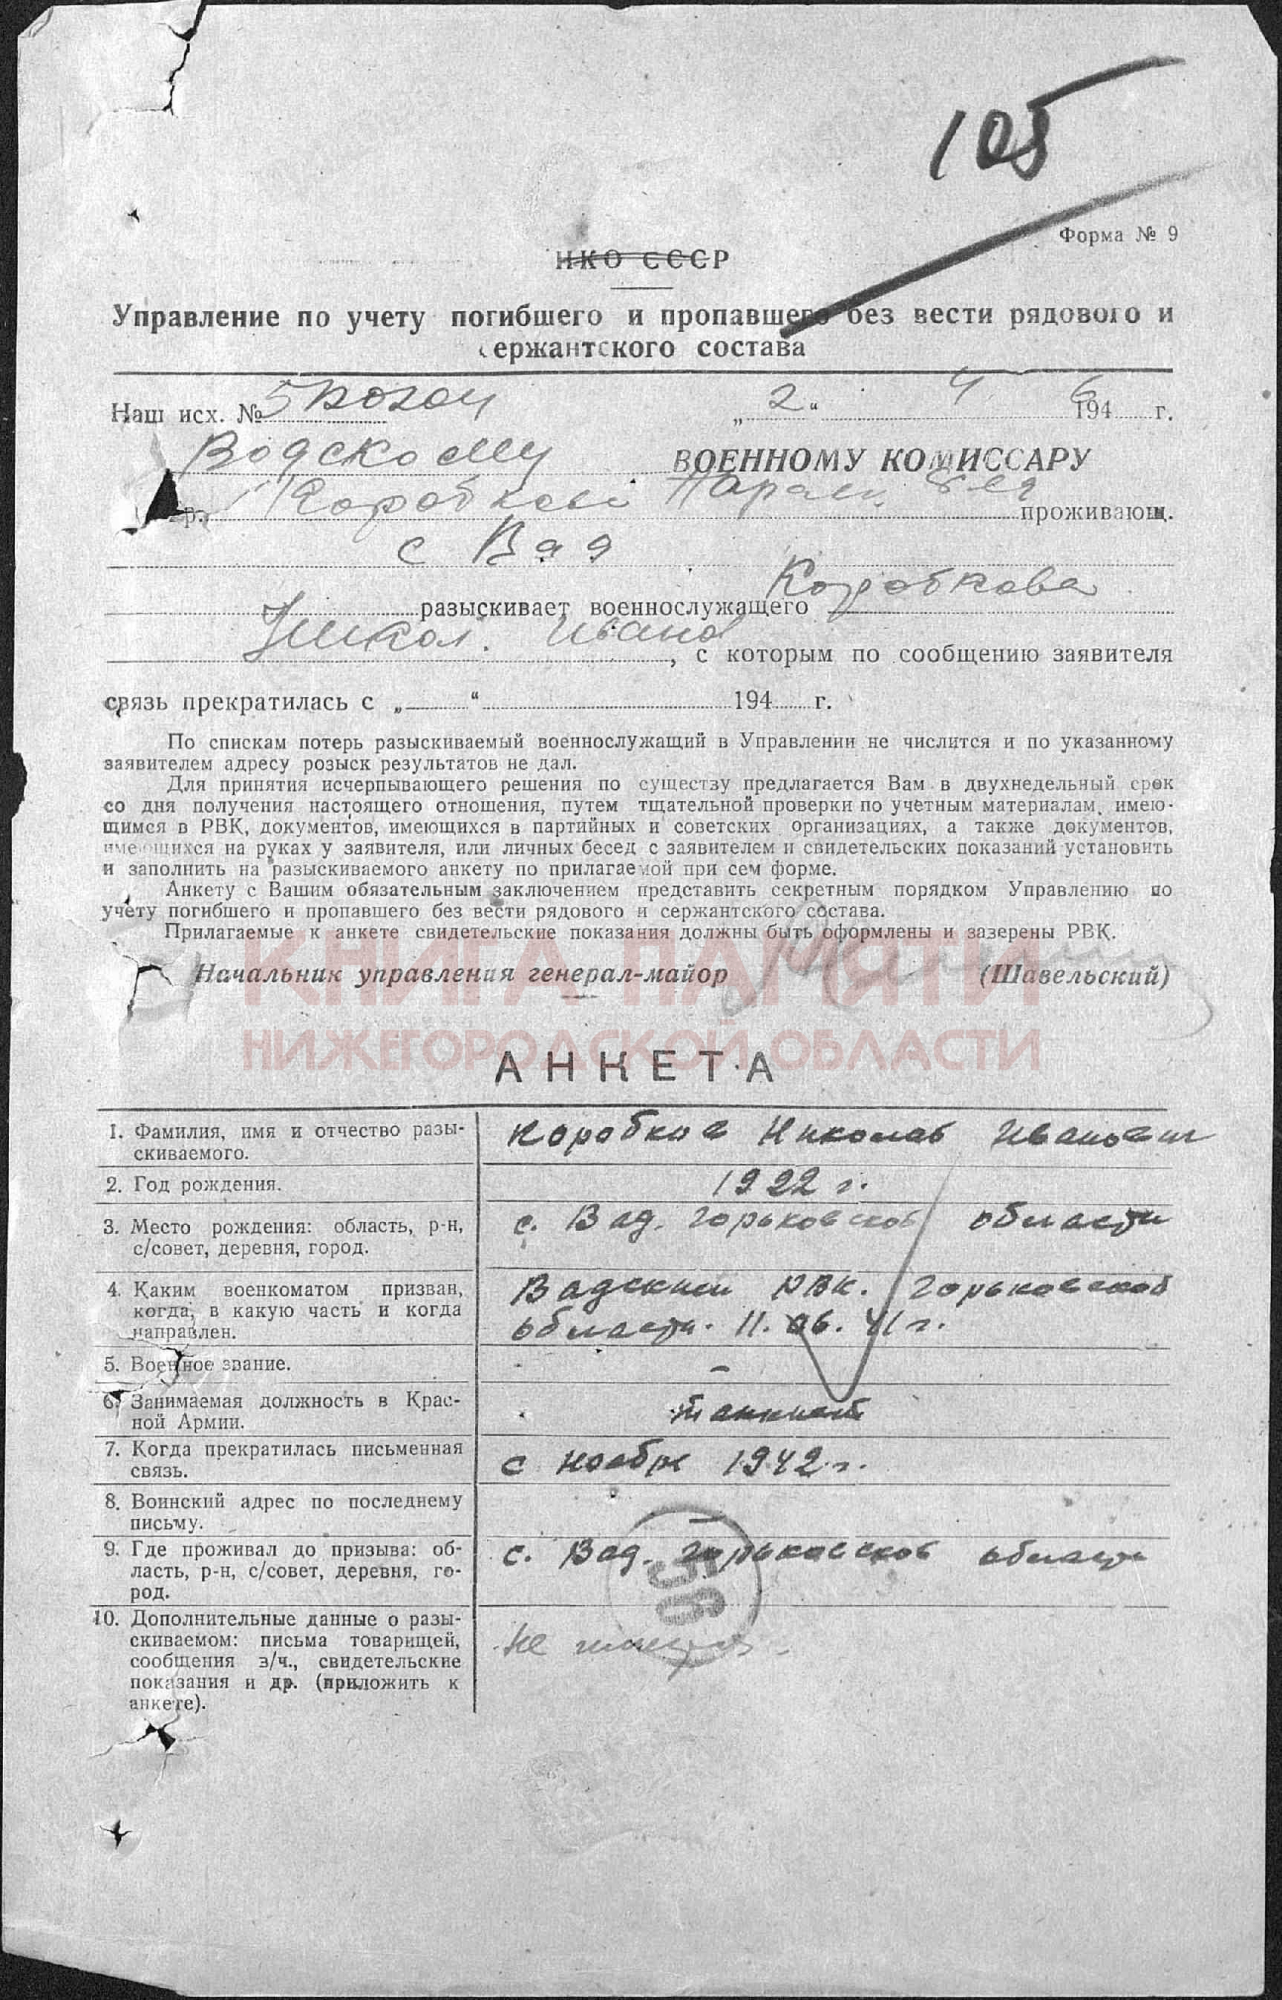 105
Форма № 9
НКО СССР
Управление по учету погибшего и пропавшего без вести рядового и
сержантского состава
Наш исх. № „ 2 “ 4 1946 г.
Водскому ВОЕННОМУ КОМИССАРУ
гр. проживающ.
с Вад
разыскивает военнослужащего Коробкова
Никол. Иванов , с которым по сообщению заявителя
связь прекратилась с „ “ 194 г.
По спискам потерь разыскиваемый военнослужащий в Управлении не числится и по указанному
заявителем адресу розыск результатов не дал.
Для принятия исчерпывающего решения по существу предлагается Вам в двухнедельный срок
со дня получения настоящего отношения, путем тщательной проверки по учетным материалам, имею-
щимся в РВК, документов, имеющихся в партийных и советских организациях, а также документов,
имеющихся на руках у заявителя, или личных бесед с заявителем и свидетельских показаний установить
и заполнить на разыскиваемого анкету по прилагаемой при сем форме.
Анкету с Вашим обязательным заключением представить секретным порядком Управлению по
учету погибшего и пропавшего без вести рядового и сержантского состава.
Прилагаемые к анкете свидетельские показания должны быть оформлены и заверены РВК.
КНИГА ПАМЯТИ
Начальник управления генерал-майор (Шавельский)
НИЖЕГОРОДСКОЙ ОБЛАСТИ
АНКЕТА
1. Фамилия, имя и отчество разы-
скиваемого.
Коробков Николай Иванович
2. Год рождения.
1922 г.
3. Место рождения: область, р-н,
с/совет, деревня, город.
с. Вад. Горьковской области
4. Каким военкоматом призван,
когда, в какую часть и когда
направлен.
Вадский РВК. Горьковской
области. 11. 06. 41 г.
5. Военное звание.
–
6. Занимаемая должность в Крас-
ной Армии.
танкист
7. Когда прекратилась письменная
связь.
с ноябр 1942 г.
8. Воинский адрес по последнему
письму.
–
9. Где проживал до призыва: об-
ласть, р-н, с/совет, деревня, го-
род.
с. Вад. Горьковской области
56
10. Дополнительные данные о разы-
скиваемом: письма товарищей,
сообщения з/ч., свидетельские
показания и др. (приложить к
анкете).
Не